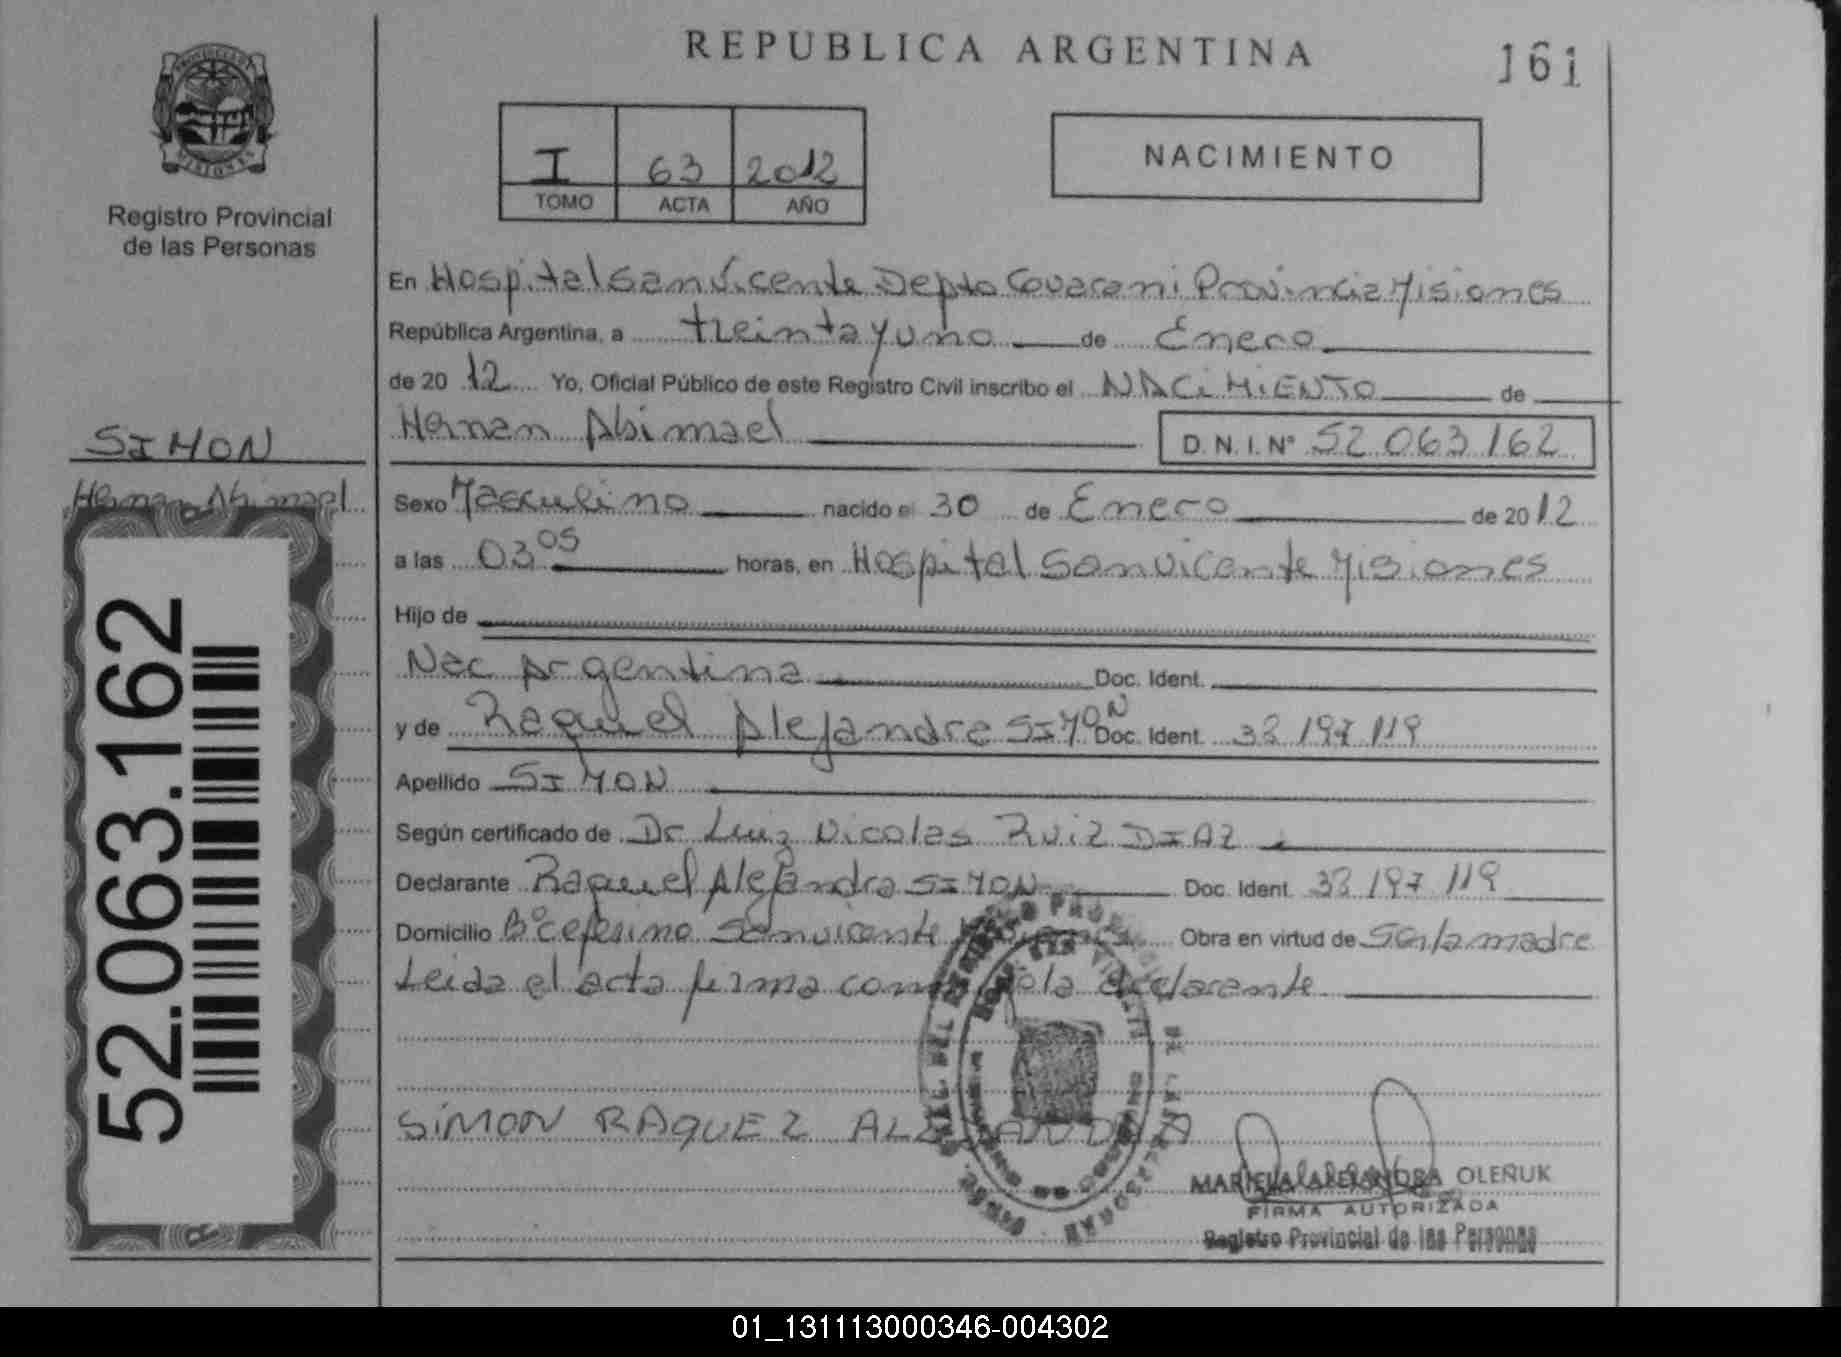 REPUBLICA ARGENTINA
161
PROVINCIA DE
MISIONES
Registro Provincial
de las Personas
I 63 2012
TOMO ACTA AÑO
NACIMIENTO
En Hospital San Vicente Depto Guarani Provincia Misiones
República Argentina, a treinta y uno de Enero
de 20 12 Yo, Oficial Público de este Registro Civil inscribo el NACIMIENTO de
Hernan Abimael D.N.I.Nº 52.063.162
SIMON
Hernan Abimael
Sexo Masculino nacido el 30 de Enero de 2012
a las 03 05 horas, en Hospital San Vicente Misiones
Hijo de
Nac Argentina Doc. Ident.
y de Raquel Alejandra SIMON Doc. Ident. 33 197 119
Apellido SIMON
Según certificado de Dr Luiz Nicolas Ruiz DIAZ
Declarante Raquel Alejandra SIMON Doc. Ident. 33 197 119
Domicilio Bº Ceferino San Vicente Obra en virtud de Ser la madre
Leida el acta firma conmigo la declarante
SIMON RAQUEL ALEJANDRA
MARIELA ALEJANDRA OLEÑUK
FIRMA AUTORIZADA
Registro Provincial de las Personas
52.063.162
01_131113000346-004302